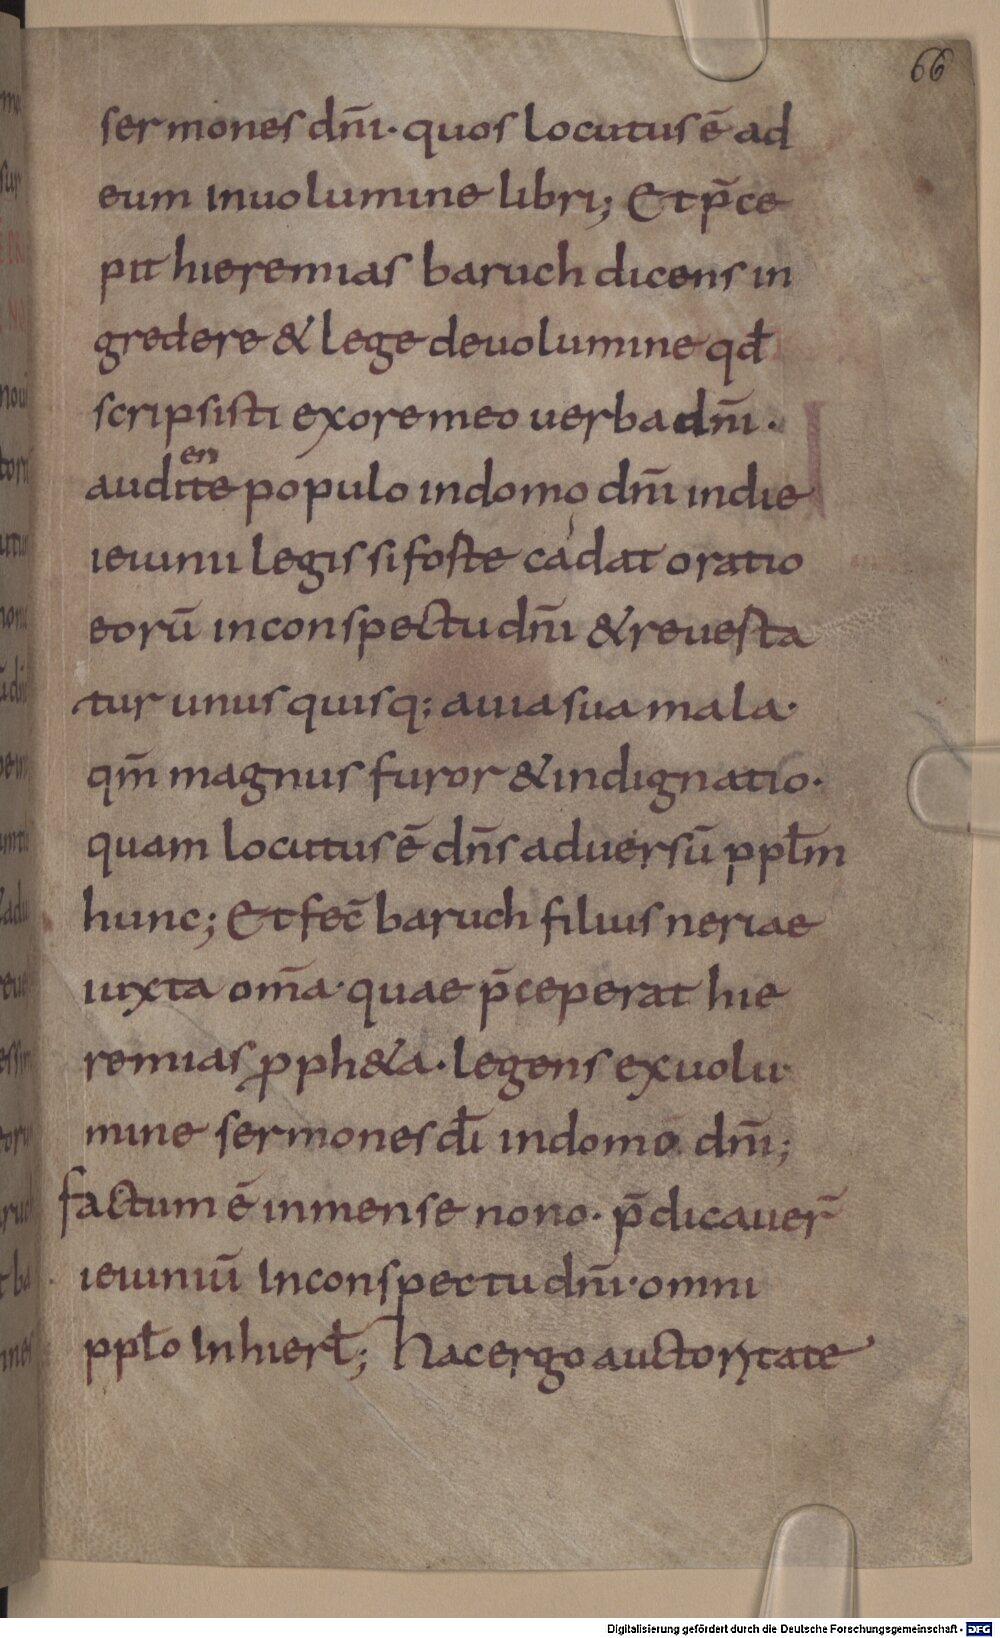 66
sermones dñi· quos locutus ē ad
eum inuolumine libri; Et p̄ce
pit hieremias baruch dicens in
gredere & lege deuolumine qđ
scripsisti exore meo uerba dñi·
en
audite populo indomo dñi indie
ieiunii legis si foste cadat oratio
eorū inconspectu dñi & reuesta
tur unus quisq; auia sua mala·
qm̄ magnus furor & indignatio·
quam locutus ē dñs aduersū pplm̄
hunc; Et fec̄ baruch filius neriae
iuxta om̄a· quae p̄ceperat hie
remias pph&a· legens exuolu
mine sermones dī indomo dñi;
factum ē inmense nono· p̄dicauer̄
ieiuniū Inconspectu dñi· omni
pplo Inhierl̄; hac ergo auctoritate
Digitalisierung gefördert durch die Deutsche Forschungsgemeinschaft - DFG